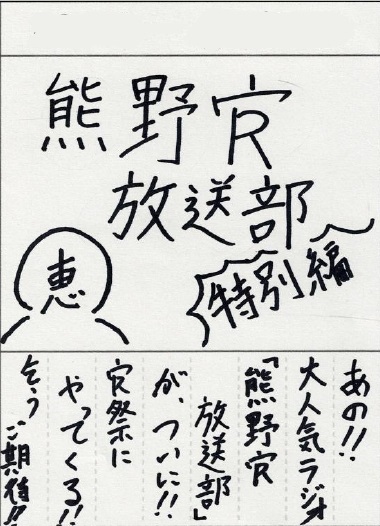 熊野寮
放送部
特別編
恵
あの!!
大人気ラジオ
「熊野寮
放送部」
が、ついに!!
寮祭に
やってくる!!
乞うご期待!!